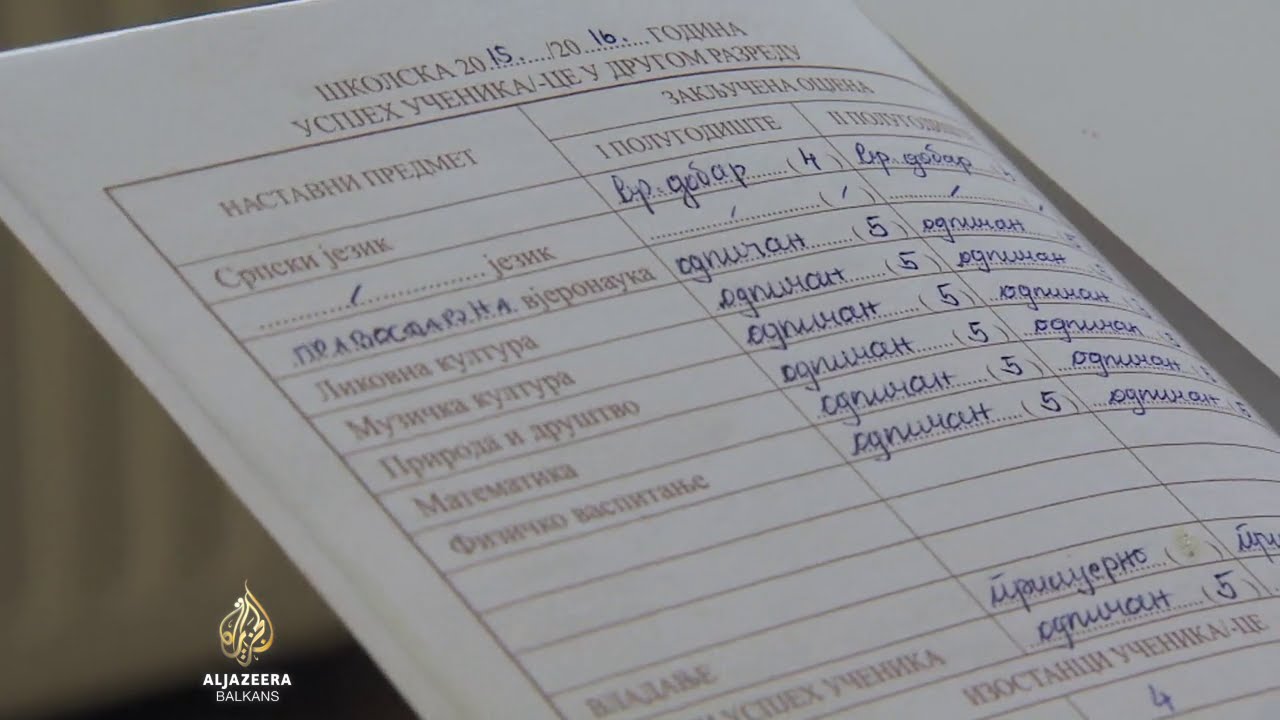 ШКОЛСКА 2015./2016. ГОДИНА
УСПЈЕХ УЧЕНИКА/-ЦЕ У ДРУГОМ РАЗРЕДУ
НАСТАВНИ ПРЕДМЕТ
ЗАКЉУЧЕНА ОЦЈЕНА
I ПОЛУГОДИШТЕ II ПОЛУГОДИШТЕ
Српски језик вр. добар (4) вр. добар
/ језик / (/) /
ПРАВОСЛАВНА вјеронаука одличан (5) одличан
Ликовна култура одличан (5) одличан
Музичка култура одличан (5) одличан
Природа и друштво одличан (5) одличан
Математика одличан (5) одличан
Физичко васпитање одличан (5) одличан (5
ВЛАДАЊЕ примјерно
УСПЈЕХ УЧЕНИКА одличан (5)
ИЗОСТАНЦИ УЧЕНИКА/-ЦЕ
4
ALJAZEERA
BALKANS